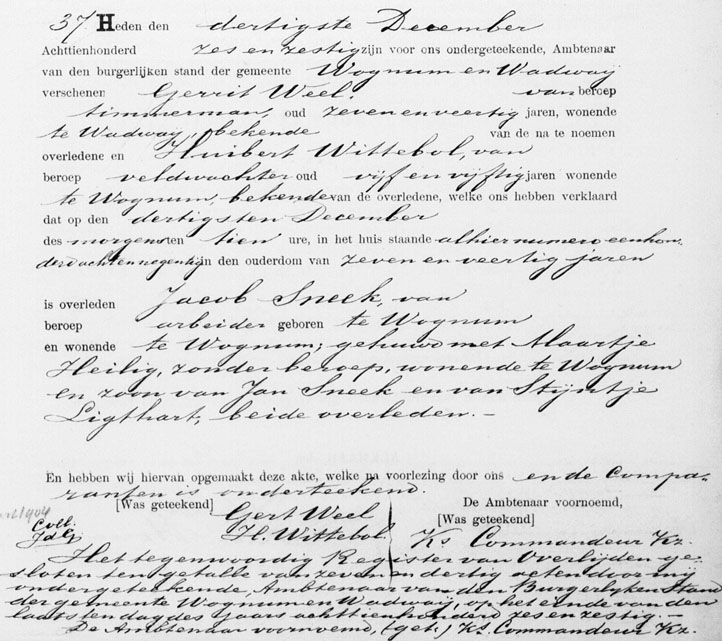 37. Heden den dertigste December
Achttienhonderd zes en zestig zijn voor ons ondergeteekende, Ambtenaar
van den burgerlijken stand der gemeente Wognum en Wadway
verschenen Gerrit Weel. van beroep
timmerman, oud zeven en veertig jaren, wonende
te Wadway, bekende van de na te noemen
overledene en Huibert Wittebol, van
beroep veldwachter oud vijf en vijftig jaren wonende
te Wognum, bekende van de overledene, welke ons hebben verklaard
dat op den dertigsten December
des morgens ten tien ure, in het huis staande alhier numero eenhon-
derd acht en negentig in den ouderdom van zeven en veertig jaren
is overleden Jacob Sneek, van
beroep arbeider geboren te Wognum
en wonende te Wognum; gehuwd met Maartje
Heilig, zonder beroep, wonende te Wognum
en zoon van Jan Sneek en van Stijntje
Ligthart, beide overleden. —
En hebben wij hiervan opgemaakt deze akte, welke na voorlezing door ons en de Compa-
ranten is onderteekend.
[Was geteekend] Gert Weel
H. Wittebol.
De Ambtenaar voornoemd,
[Was geteekend]
Ks Commandeur Kz.
1904
Coll.
JdG
Het tegenwoordig Register van Overlijden ge-
sloten ten getalle van zeven en dertig acten door mij
ondergeteekende, Ambtenaar van den Burgerlyken Stand
der gemeente Wognum en Wadwaij, op het einde van den
laatsten dag des jaars achttienhonderd zes en zestig. —
De Ambtenaar voornoemd, (get.) Ks. Commandeur Kz.